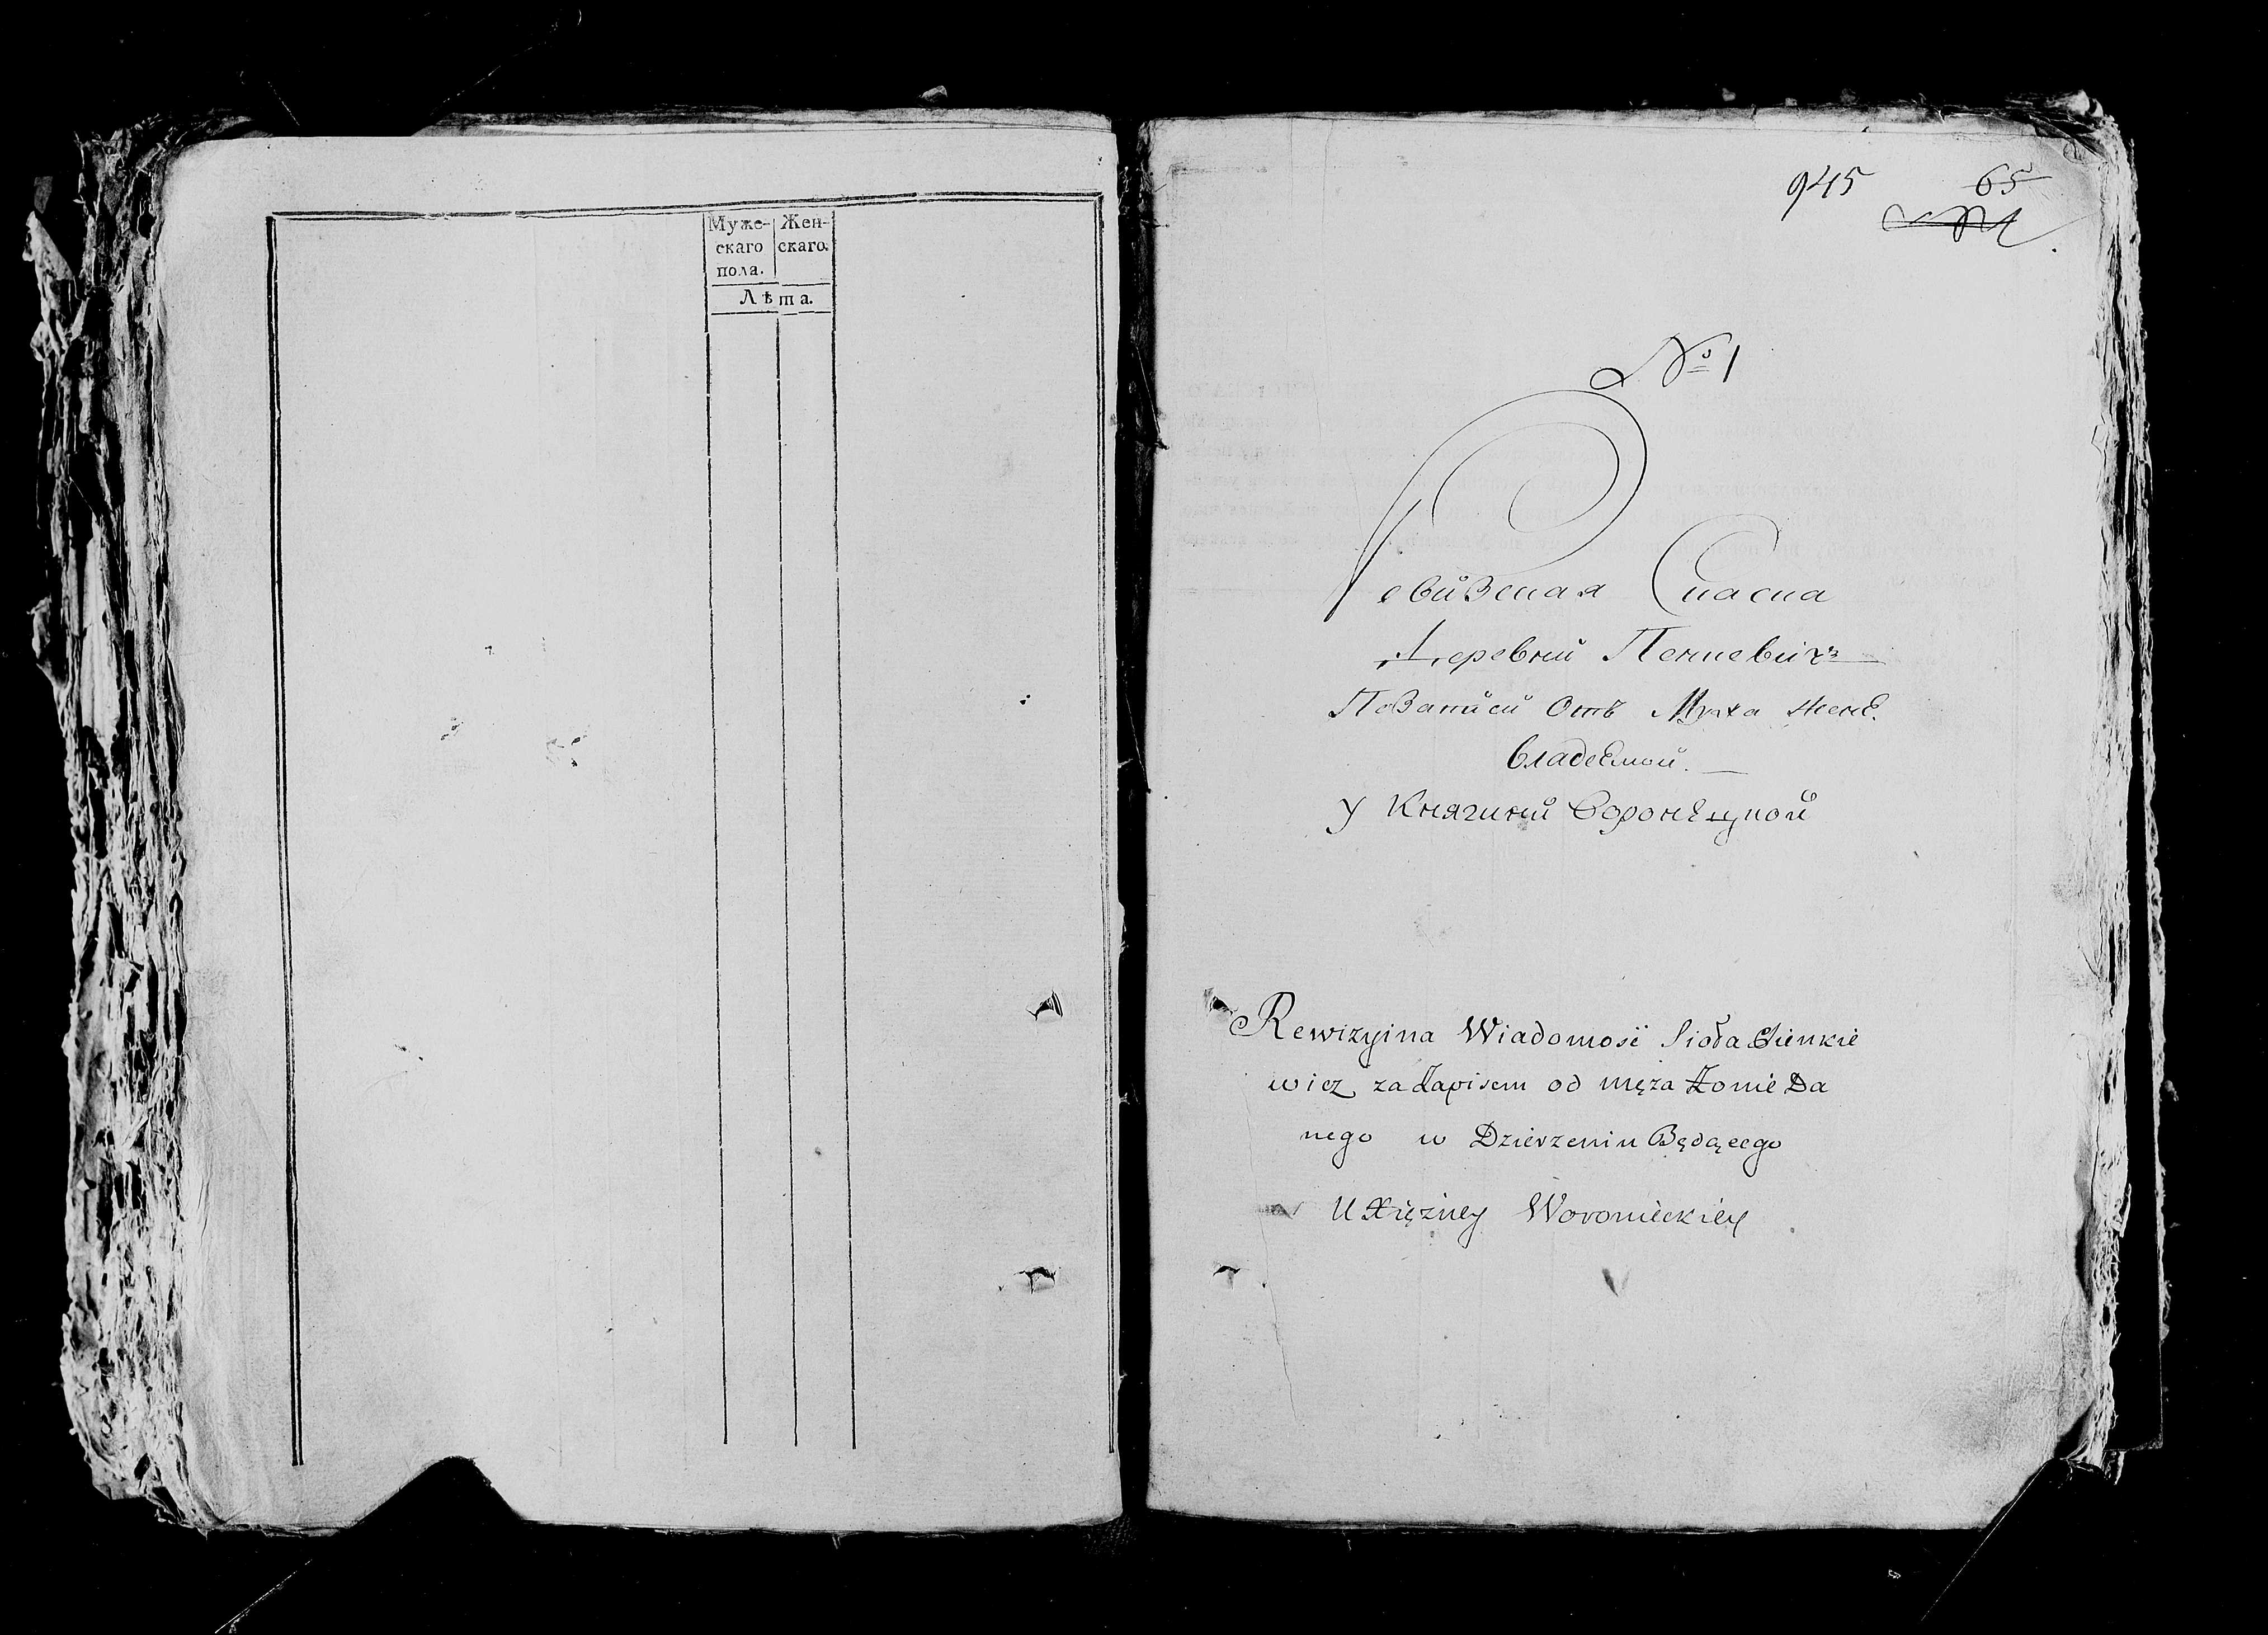 Муже-
скаго
пола.
Жен-
скаго.
Лѣта.
945 65
№ 1
Ревизская Сказка
Деревни Пенкевичъ
Позаписи Отъ Мужа женѣ
владеемой.
У Княгини Воронѣцкой
Rewizyina Wiadomość Sioła Sienkie
wicz za Zapisem od męża Żonie Da
nego w Dzierzeniu Będącego
U Xiężney Woronieckiey